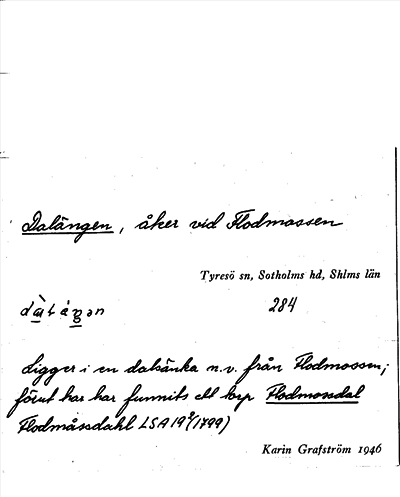 Dalängen, åker vid Flodmossen
Tyresö sn, Sotholms hd, Shlms län
284
Ligger i en dalsänka n.v. från Flodmossen;
förut har här funnits ett torp Flodmossdal
Flodmåssdahl LSA 19⁹/(1799)
Karin Grafström 1946